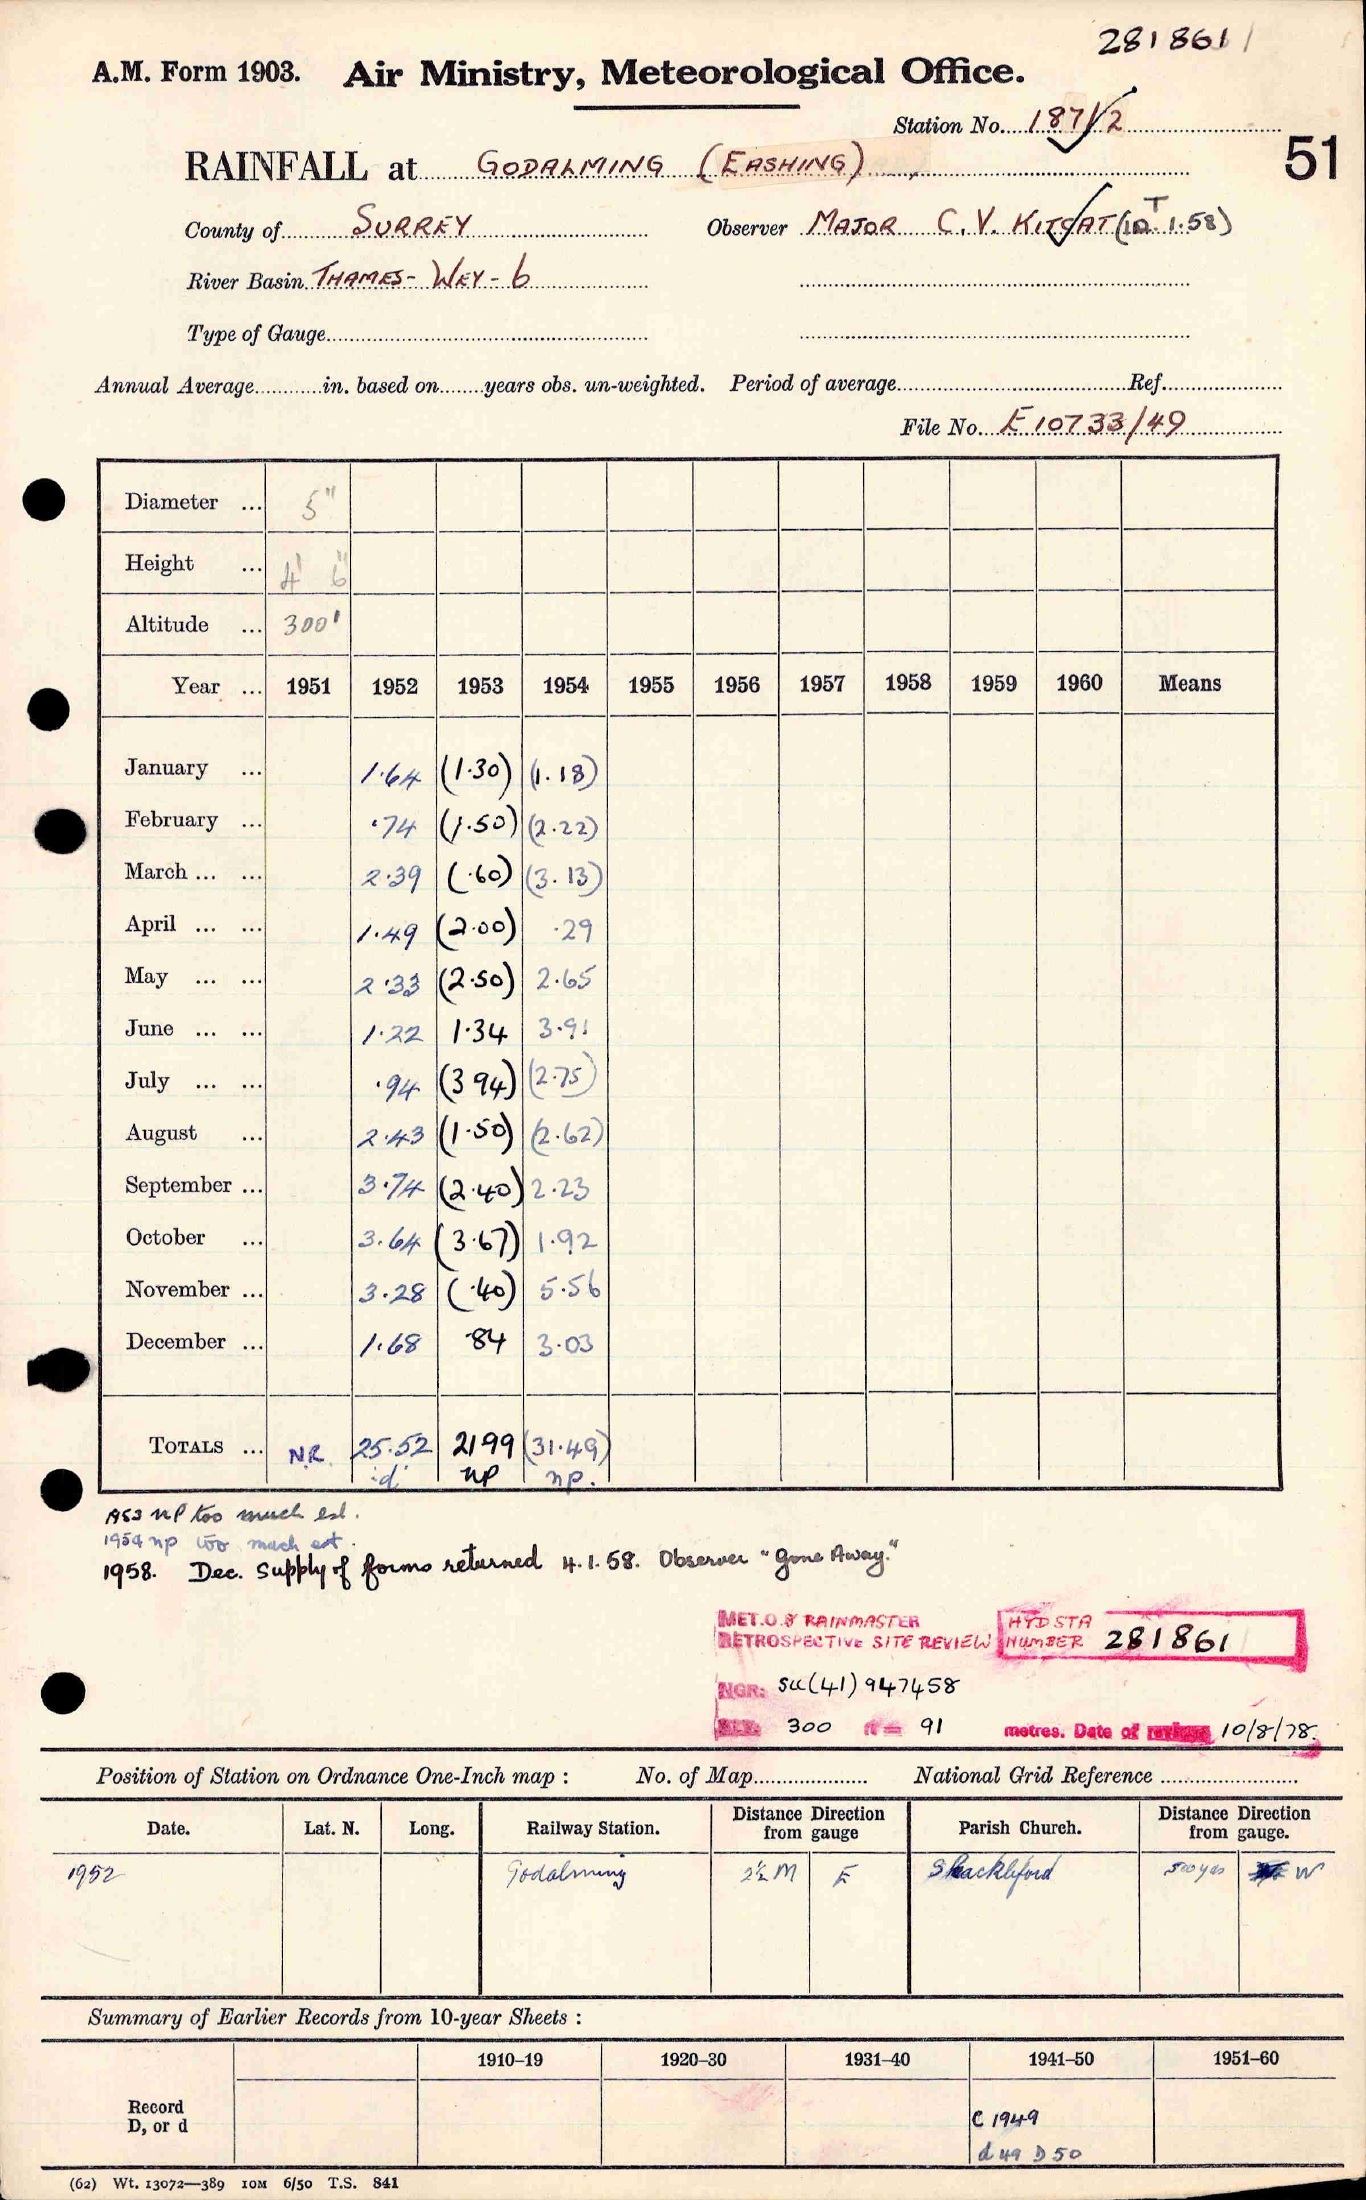 281861
A.M. Form 1903. Air Ministry, Meteorological Office.
Station No. 187/2
51
RAINFALL at GODALMING (EASHING)
County of SURREY Observer MAJOR C. V. KITCAT (10T 1.58)
River Basin THAMES - WEY - 6
Type of Gauge
Annual Average in. based on years obs. un-weighted. Period of average Ref.
File No. E 10733/49
Diameter ... 5"
Height ... 4' 6"
Altitude ... 300'
Year ... 1951 1952 1953 1954 1955 1956 1957 1958 1959 1960 Means
January ... 1.64 (1.30) (1.18)
February ... .74 (1.50) (2.22)
March ... ... 2.39 (.60) (3.13)
April ... ... 1.49 (2.00) .29
May ... ... 2.33 (2.50) 2.65
June ... ... 1.22 1.34 3.91
July ... ... .94 (3 94) (2.75)
August ... 2.43 (1.50) (2.62)
September ... 3.74 (2.40) 2.23
October ... 3.64 (3.67) 1.92
November ... 3.28 (.40) 5.56
December ... 1.68 .84 3.03
TOTALS ... N.R. 25.52 2199 (31.49)
'd' np np.
1953 np too much est.
1954 np too much est.
1958. Dec. Supply of forms returned 4.1.58. Observer "Gone Away."
MET.O.8 RAINMASTER HYD STA
RETROSPECTIVE SITE REVIEW NUMBER 281861
NGR: SU(41) 947458
ALT: 300 ft = 91 metres. Date of review 10/8/78.
Position of Station on Ordnance One-Inch map : No. of Map National Grid Reference
Date. Lat. N. Long. Railway Station. Distance Direction from gauge Parish Church. Distance Direction from gauge.
1952 Godalming 2½ M E Shackleford 500 yds W
Summary of Earlier Records from 10-year Sheets :
1910–19 1920–30 1931–40 1941–50 1951–60
Record
D, or d
C 1949
d 49 D 50
(62) Wt. 13072—389 10M 6/50 T.S. 841